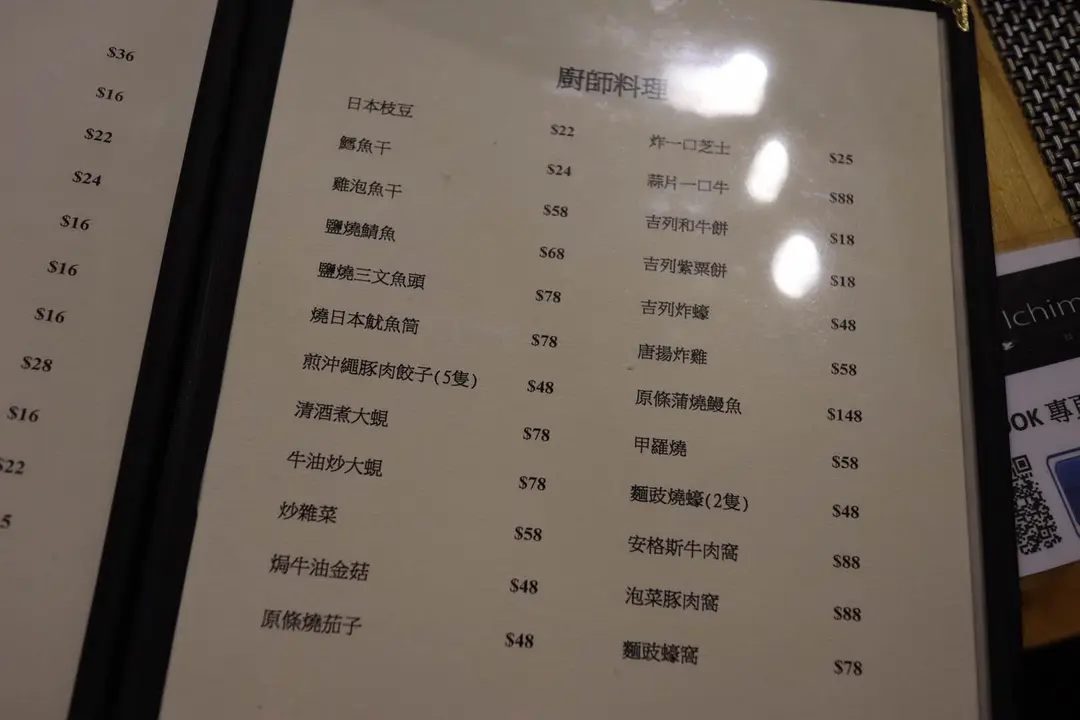 $36
$16
$22
$24
$16
$16
$16
$28
$16
$22
5
廚師料理
日本枝豆 $22
鱈魚干 $24
雞泡魚干 $58
鹽燒鯖魚 $68
鹽燒三文魚頭 $78
燒日本魷魚筒 $78
煎沖繩豚肉餃子(5隻) $48
清酒煮大蜆 $78
牛油炒大蜆 $78
炒雜菜 $58
焗牛油金菇 $48
原條燒茄子 $48
炸一口芝士 $25
蒜片一口牛 $88
吉列和牛餅 $18
吉列紫粟餅 $18
吉列炸蠔 $48
唐揚炸雞 $58
原條蒲燒鰻魚 $148
甲羅燒 $58
麵豉燒蠔(2隻) $48
安格斯牛肉窩 $88
泡菜豚肉窩 $88
麵豉蠔窩 $78
Ichim
OK 專頁